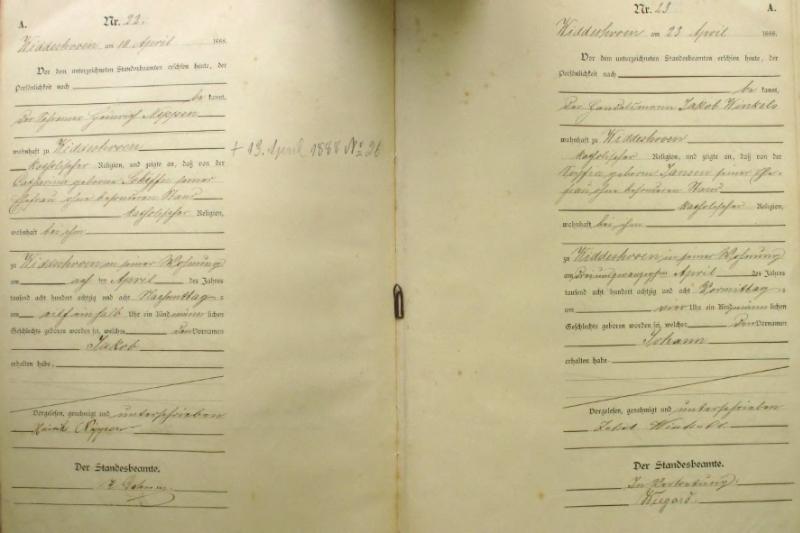 A.
Nr. 22.
Widdeshoven am 10 April 1888.
Vor dem unterzeichneten Standesbeamten erschien heute, der
Persönlichkeit nach
be kannt,
Der Heinrich Nippen
wohnhaft zu Widdeshoven
katholischer Religion, und zeigte an, daß von der
Catharina geborene seiner
Ehefrau ohne besonderen Stand
katholischer Religion,
wohnhaft bei ihm
zu Widdeshoven in seiner Wohnung
am ach ten April des Jahres
tausend acht hundert achtzig und acht Nachmittag s
um elf einhalb Uhr ein Kind männ lichen
Geschlechts geboren worden sei, welches den Vornamen
Jakob
erhalten habe.
Vorgelesen, genehmigt und unterschrieben
Nippen
Der Standesbeamte.
+ 13. April 1888 No 26
Nr. 23
A.
Widdeshoven am 23 April 1888.
Vor dem unterzeichneten Standesbeamten erschien heute, der
Persönlichkeit nach
be kannt,
Der Handelsmann Jakob Winkels
wohnhaft zu Widdeshoven
katholischer Religion, und zeigte an, daß von der
geboren Jansen seiner Ehe-
frau, ohne besonderen Stand
katholischer Religion,
wohnhaft bei ihm
zu Widdeshoven in seiner Wohnung
am Dreiundzwanzigsten April des Jahres
tausend acht hundert achtzig und acht Vormittag s
um vier Uhr ein Kind männ lichen
Geschlechts geboren worden sei, welches den Vornamen
Johann
erhalten habe
Vorgelesen, genehmigt und unterschrieben
Winkels
Der Standesbeamte.
In Vertretung